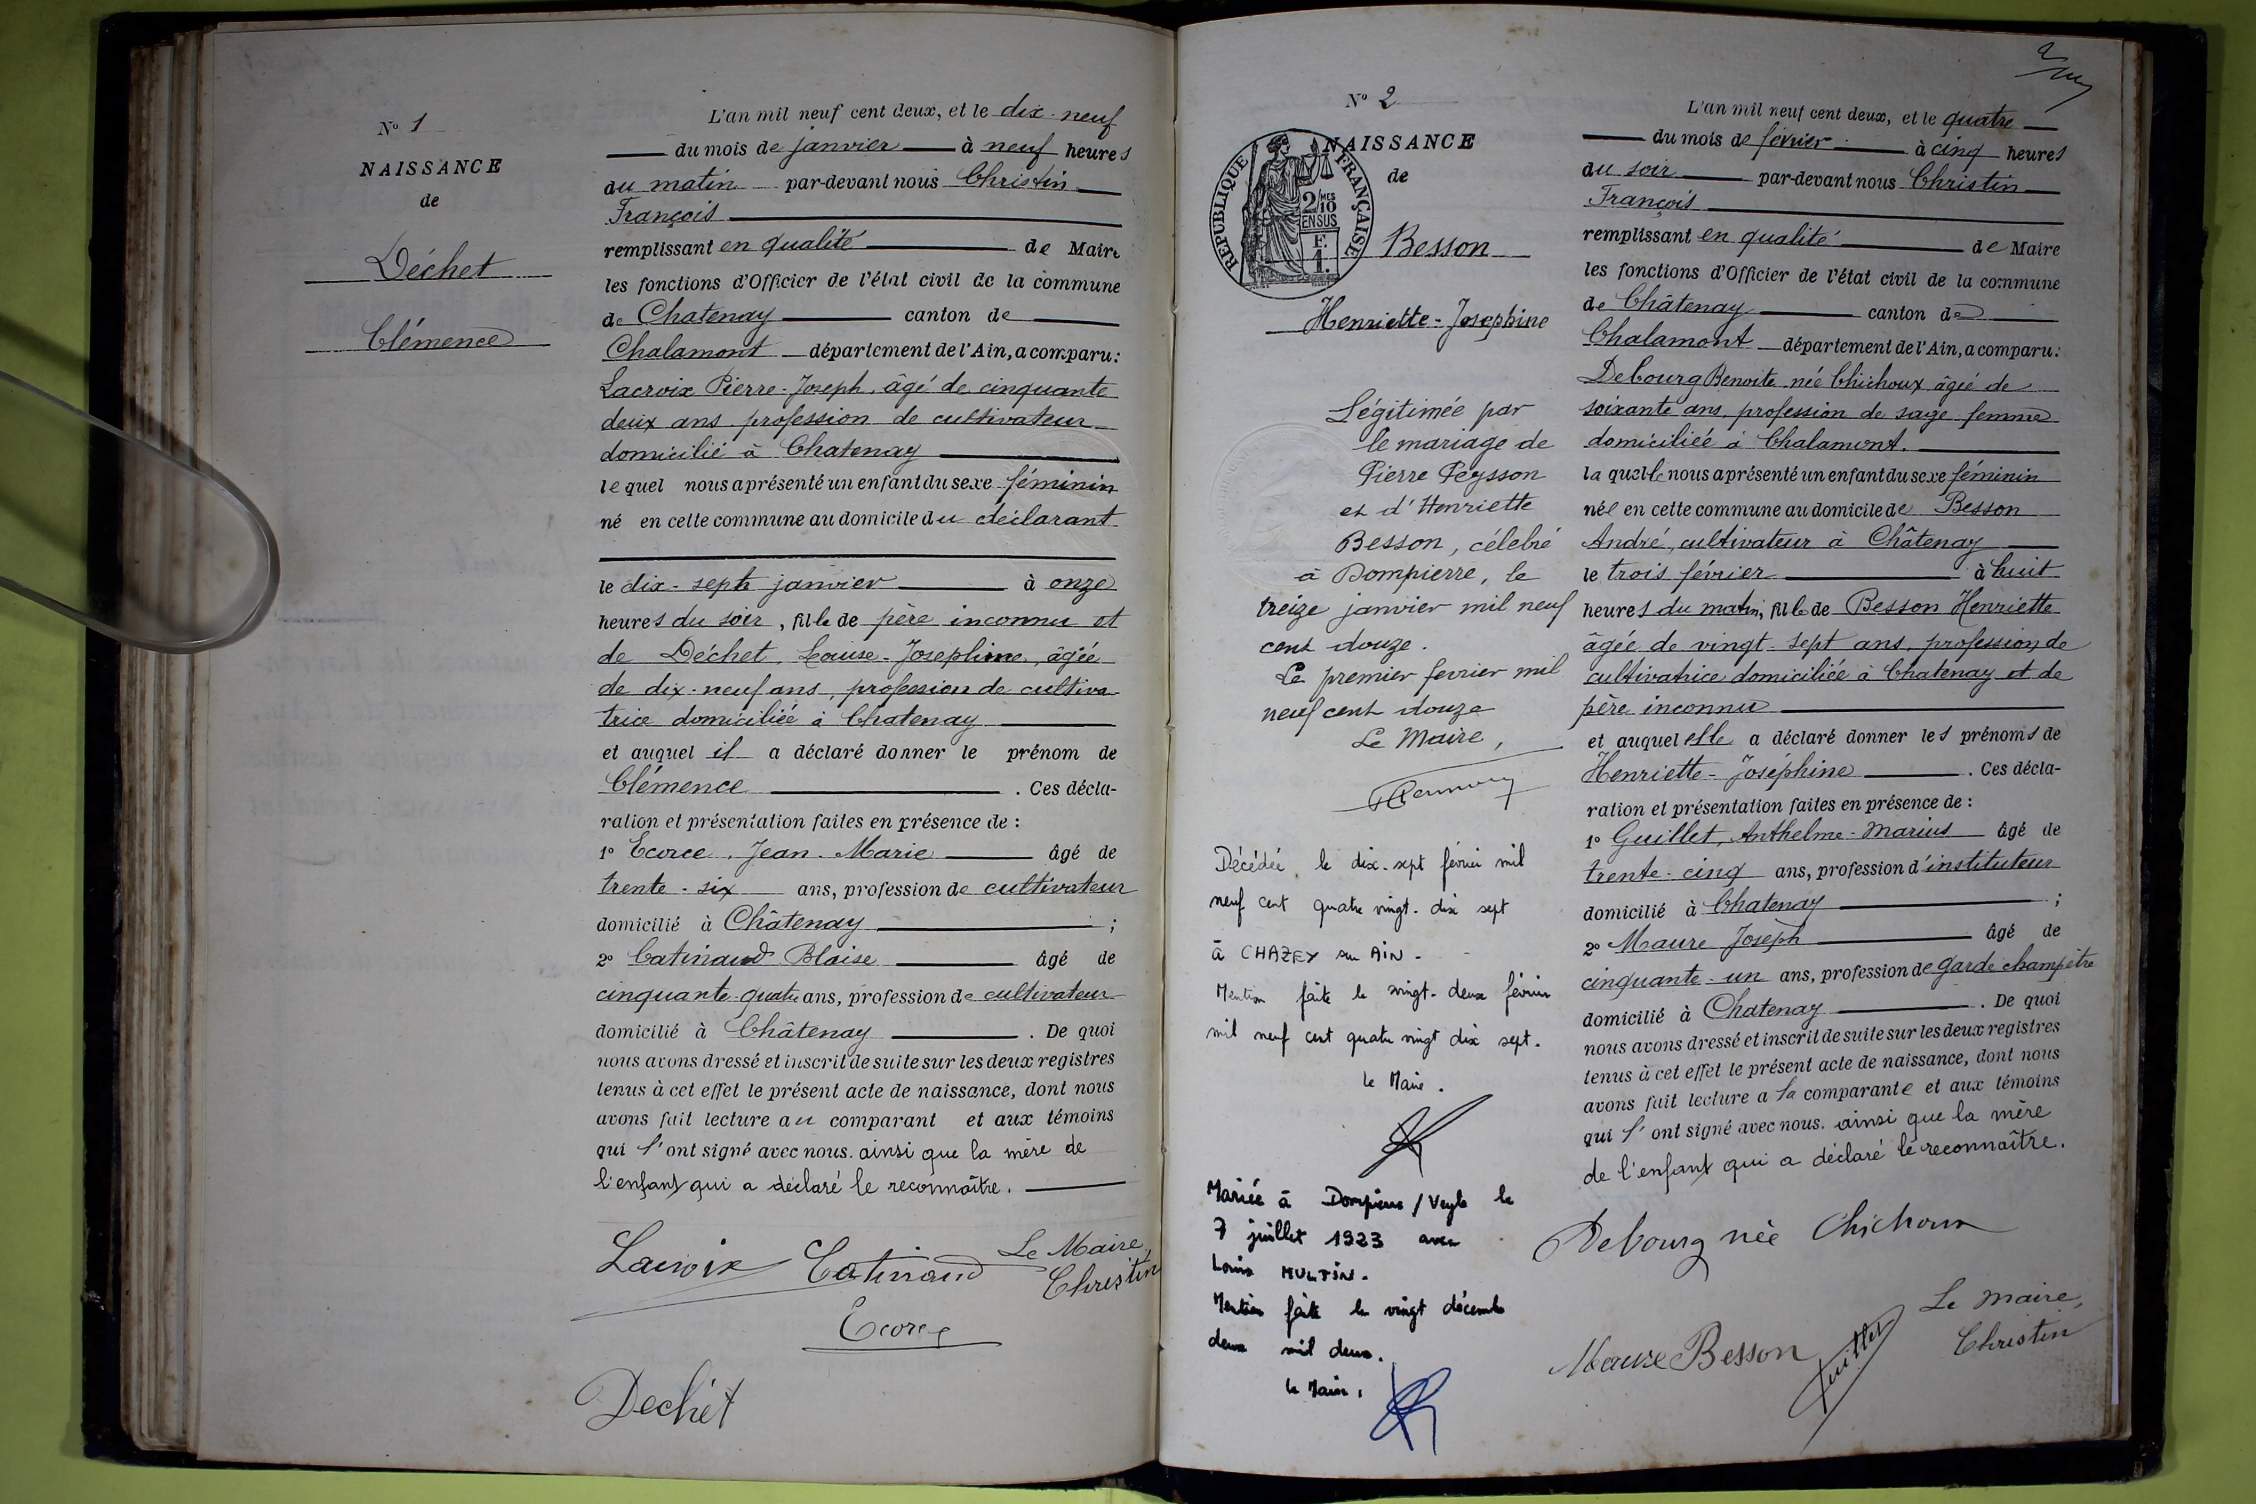 Nº 1
NAISSANCE
de
Déchet
Clémence
L'an mil neuf cent deux, et le dix-neuf
du mois de janvier à neuf heures
du matin par-devant nous Christin
François
remplissant en qualité de Maire
les fonctions d'Officier de l'état civil de la commune
de Chatenay canton de
Chalamont département de l'Ain, a comparu:
Lacroix Pierre-Joseph, âgé de cinquante
deux ans profession de cultivateur
domicilié à Chatenay
lequel nous a présenté un enfant du sexe féminin
né en cette commune au domicile du déclarant
le dix-sept janvier à onze
heures du soir, fille de père inconnu et
de Déchet, Louise-Joséphine, âgée
de dix-neuf ans, profession de cultiva-
trice domiciliée à Chatenay
et auquel il a déclaré donner le prénom de
Clémence. Ces décla-
ration et présentation faites en présence de :
1º Ecorce, Jean-Marie âgé de
trente-six ans, profession de cultivateur
domicilié à Châtenay ;
2º Catinaud Blaise âgé de
cinquante-quatre ans, profession de cultivateur
domicilié à Châtenay. De quoi
nous avons dressé et inscrit de suite sur les deux registres
tenus à cet effet le présent acte de naissance, dont nous
avons fait lecture au comparant et aux témoins
qui l'ont signé avec nous. ainsi que la mère de
l'enfant qui a déclaré le reconnaître.
Lacroix Catinaud Le Maire
Christin
Ecorce
Dechet
2
Nº 2
NAISSANCE
de
REPUBLIQUE FRANÇAISE
2/10 MES
EN SUS
F.
1.
Besson
Henriette-Josephine
Légitimée par
le mariage de
Pierre Peysson
et d'Henriette
Besson, célébré
à Dompierre, le
treize janvier mil neuf
cent douze.
Le premier fevrier mil
neuf cent douze
Le Maire,
Décédée le dix-sept février mil
neuf cent quatre vingt-dix sept
à CHAZEY sur AIN.
Mention faite le vingt-deux février
mil neuf cent quatre vingt dix sept.
le Maire.
Mariée à Dompierre/Veyle le
7 juillet 1923 avec
Louis MULTIN.
Mention faite le vingt décembre
deux mil deux.
le Maire,
L'an mil neuf cent deux, et le quatre
du mois de février à cinq heures
du soir par-devant nous Christin
François
remplissant en qualité de Maire
les fonctions d'Officier de l'état civil de la commune
de Châtenay canton de
Chalamont département de l'Ain, a comparu:
Debourg Benoite née Chichoux âgée de
soixante ans, profession de sage femme
domiciliée à Chalamont.
laquelle nous a présenté un enfant du sexe féminin
née en cette commune au domicile de Besson
André, cultivateur à Châtenay
le trois février à huit
heures du matin, fille de Besson Henriette
âgée de vingt-sept ans, profession de
cultivatrice domiciliée à Chatenay et de
père inconnu
et auquel elle a déclaré donner les prénoms de
Henriette-Joséphine. Ces décla-
ration et présentation faites en présence de :
1º Guillet, Anthelme-Marius âgé de
trente-cinq ans, profession d'instituteur
domicilié à Chatenay ;
2º Maure Joseph âgé de
cinquante-un ans, profession de garde champêtre
domicilié à Chatenay. De quoi
nous avons dressé et inscrit de suite sur les deux registres
tenus à cet effet le présent acte de naissance, dont nous
avons fait lecture a la comparante et aux témoins
qui l'ont signé avec nous. ainsi que la mère
de l'enfant qui a déclaré le reconnaître.
Debourg née Chichoux
Le maire,
Christin
Maure Besson Guillet